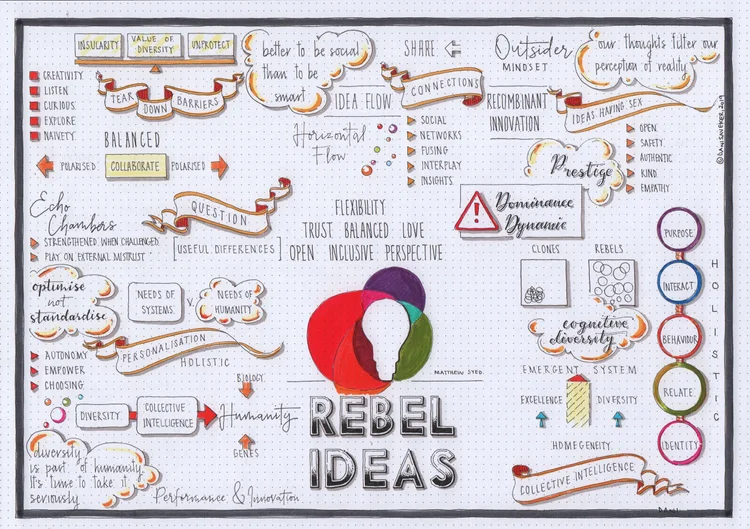 INSULARITY
VALUE OF
DIVERSITY
UNPROTECT
TEAR
DOWN
BARRIERS
CREATIVITY
LISTEN
CURIOUS
EXPLORE
NAIVETY
BALANCED
POLARISED
COLLABORATE
POLARISED
Echo
Chambers
STRENGTHENED WHEN CHALLENGED
PLAY ON EXTERNAL MISTRUST
QUESTION
[USEFUL DIFFERENCES]
better to be social
than to be
smart
IDEA FLOW
Horizontal
Flow
SHARE
CONNECTIONS
SOCIAL
NETWORKS
FUSING
INTERPLAY
INSIGHTS
Outsider
MINDSET
our thoughts filter our
perception of reality
RECOMBINANT
INNOVATION
IDEAS HAVING SEX
OPEN
SAFETY
AUTHENTIC
KIND
EMPATHY
Prestige
!
Dominance
Dynamic
FLEXIBILITY
TRUST BALANCED LOVE
OPEN INCLUSIVE PERSPECTIVE
CLONES
REBELS
cognitive
diversity
EMERGENT SYSTEM
EXCELLENCE
DIVERSITY
HOMEGENEITY
COLLECTIVE INTELLIGENCE
PURPOSE
INTERACT
BEHAVIOUR
RELATE
IDENTITY
HOLISTIC
optimise
not
standardise
NEEDS OF
SYSTEMS
V.
NEEDS OF
HUMANITY
PERSONALISATION
HOLISTIC
AUTONOMY
EMPOWER
CHOOSING
DIVERSITY
COLLECTIVE
INTELLIGENCE
Humanity
BIOLOGY
GENES
diversity
is part of humanity
It's time to take it
seriously
Performance & Innovation
MATTHEW SYED.
REBEL
IDEAS